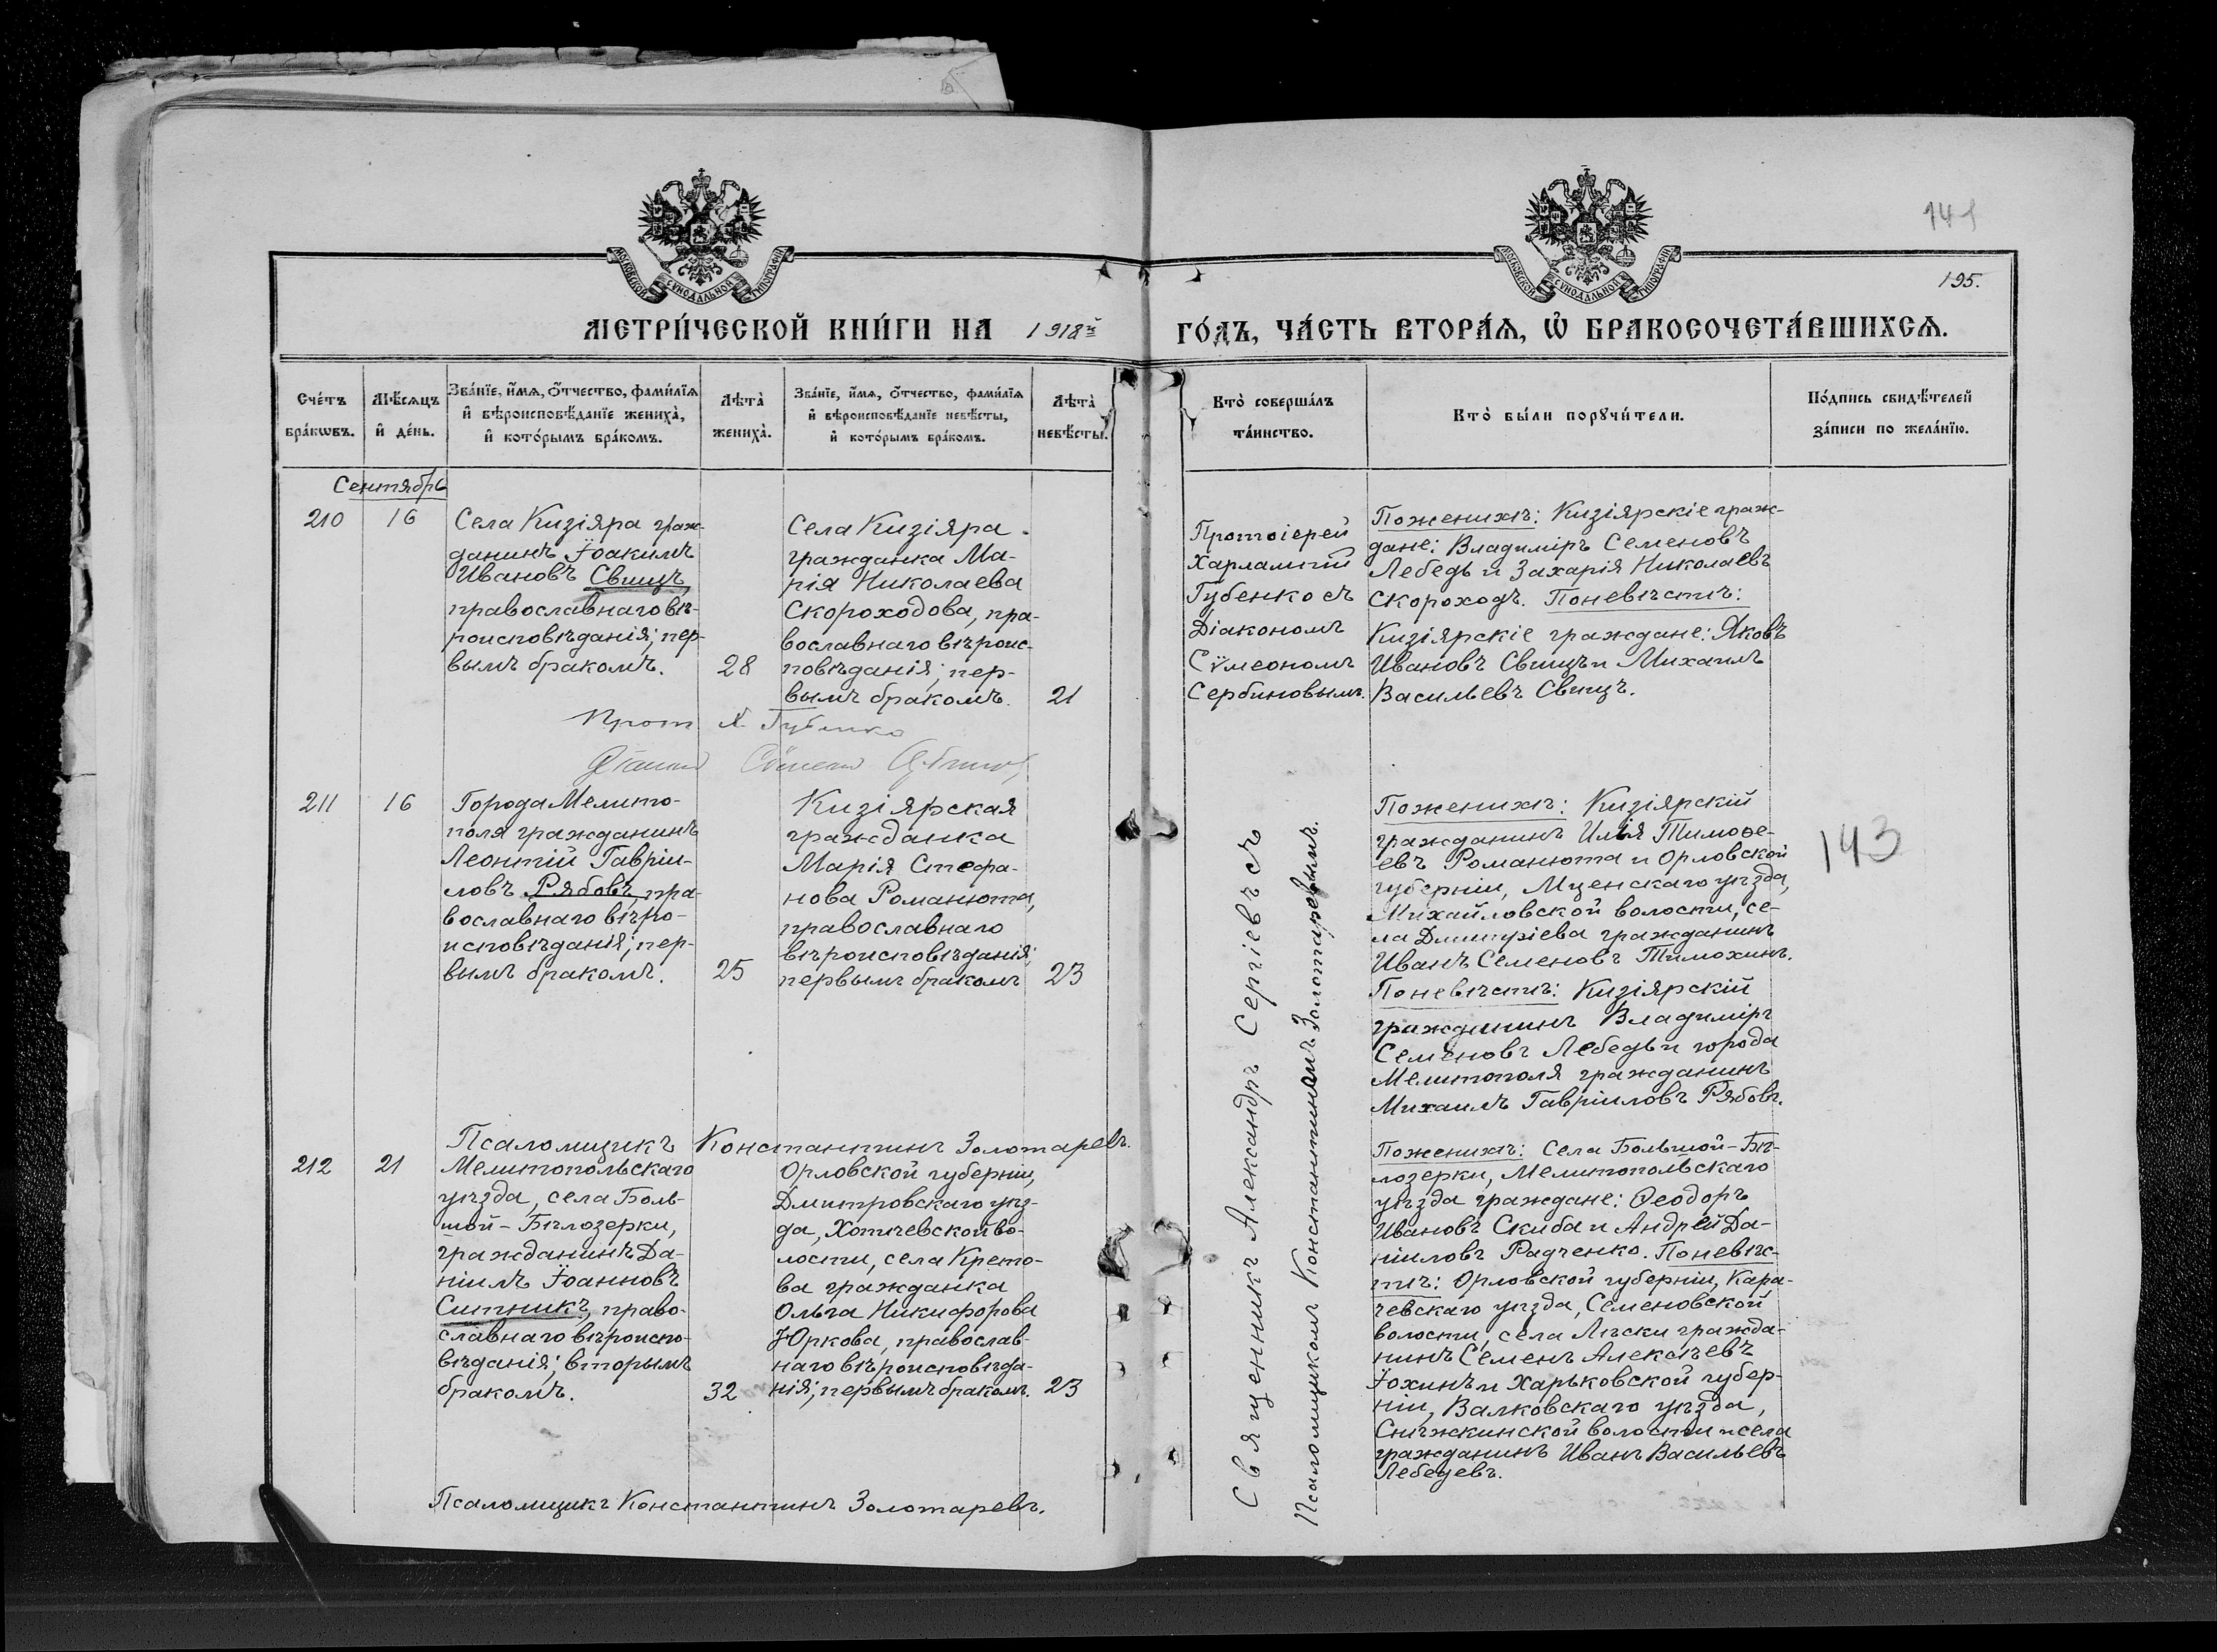 141
195.
МОСКОВСКОЙ СѴНОДАЛЬНОЙ ТИПОГРАФІИ
МОСКОВСКОЙ СѴНОДАЛЬНОЙ ТИПОГРАФІИ
МЕТРИ́ЧЕСКОЙ КНИ́ГИ НА 1918й ГО́ДЪ, ЧА́СТЬ ВТОРА́Я, Ѡ҆ БРАКОСОЧЕТА́ВШИХСѦ.
Сче́тъ
бра́кѡвъ.
Мѣ́сяцъ
и҆ де́нь.
Зва́нїе, и҆́мѧ, ѻ҆́тчество, фами́лїѧ
и҆ вѣроисповѣ́данїе жениха̀,
и҆ кото́рымъ бра́комъ.
Лѣта̀
жениха̀.
Зва́нїе, и҆́мѧ, ѻ҆́тчество, фами́лїѧ
и҆ вѣроисповѣ́данїе невѣ́сты,
и҆ кото́рымъ бра́комъ.
Лѣта̀
невѣ́сты.
Кто̀ соверша́лъ
та́инство.
Кто̀ бы́ли порꙋчи́тели.
По́дпись свидѣ́телей
за́писи по жела́нїю.
Сентябрь
210
16
Села Кизіяра граж-
данинъ Іоакимъ
Ивановъ Свищъ,
православнаго вѣ-
роисповѣданія; пер-
вымъ бракомъ.
28
Села Кизіяра
гражданка Ма-
рія Николаева
Скороходова, пра-
вославнаго вѣроис-
повѣданія; пер-
вымъ бракомъ.
21
Прот Х. Губенко
Протоіерей
Харлампій
Губенко съ
Діакономъ
Сѵмеономъ
Сербиновымъ.
По женихѣ: Кизіярскіе граж-
дане: Владиміръ Семеновъ
Лебедь и Захарія Николаевъ
Скороходъ. По невѣстѣ:
Кизіярскіе граждане: Яковъ
Ивановъ Свищъ и Михаилъ
Васильевъ Свищъ.
211
16
Города Мелито-
поля гражданинъ
Леонтій Гавріи-
ловъ Рябовъ, пра-
вославнаго вѣро-
исповѣданія; пер-
вымъ бракомъ.
25
Кизіярская
гражданка
Марія Стефа-
нова Романюта,
православнаго
вѣроисповѣданія;
первымъ бракомъ
23
Псаломщикъ Константинъ Золотаревъ.
Священникъ Александръ Сергіевъ съ
Псаломщикомъ Константиномъ Золотаревымъ.
По женихѣ: Кизіярскій
гражданинъ Илья Тимоѳе-
евъ Романюта и Орловской
губерніи, Мценскаго уѣзда,
Михайловской волости, се-
ла Дмитріева гражданинъ
Иванъ Семеновъ Тимохинъ.
По невѣстѣ: Кизіярскій
гражданинъ Владиміръ
Семеновъ Лебедь и города
Мелитополя гражданинъ
Михаилъ Гавріиловъ Рябовъ.
143
212
21
Мелитопольскаго
уѣзда, села Боль-
шой-Бѣлозерки,
гражданинъ Да-
ніилъ Іоанновъ
Ситникъ, право-
славнаго вѣроиспо-
вѣданія; вторымъ
бракомъ.
32
Орловской губерніи,
Дмитровскаго уѣз-
да, Хотѣевской во-
лости, села Крето-
ва гражданка
Ольга Никифорова
Юркова, православ-
наго вѣроисповѣда-
нія; первымъ бракомъ.
23
По женихѣ: Села Большой-Бѣ-
лозерки, Мелитопольскаго
уѣзда граждане: Ѳеодоръ
Ивановъ Скиба и Андрей Да-
ніиловъ Радченко. По невѣс-
тѣ: Орловской губерніи, Кара-
чевскаго уѣзда, Семеновской
волости, села Лѣски гражда-
нинъ Семенъ Алексѣевъ
Іохинъ и Харьковской губер-
ніи, Валковскаго уѣзда,
Снѣжкинской волости и села
гражданинъ Иванъ Васильевъ
Лебедевъ.
Псаломщикъ Константинъ Золотаревъ.